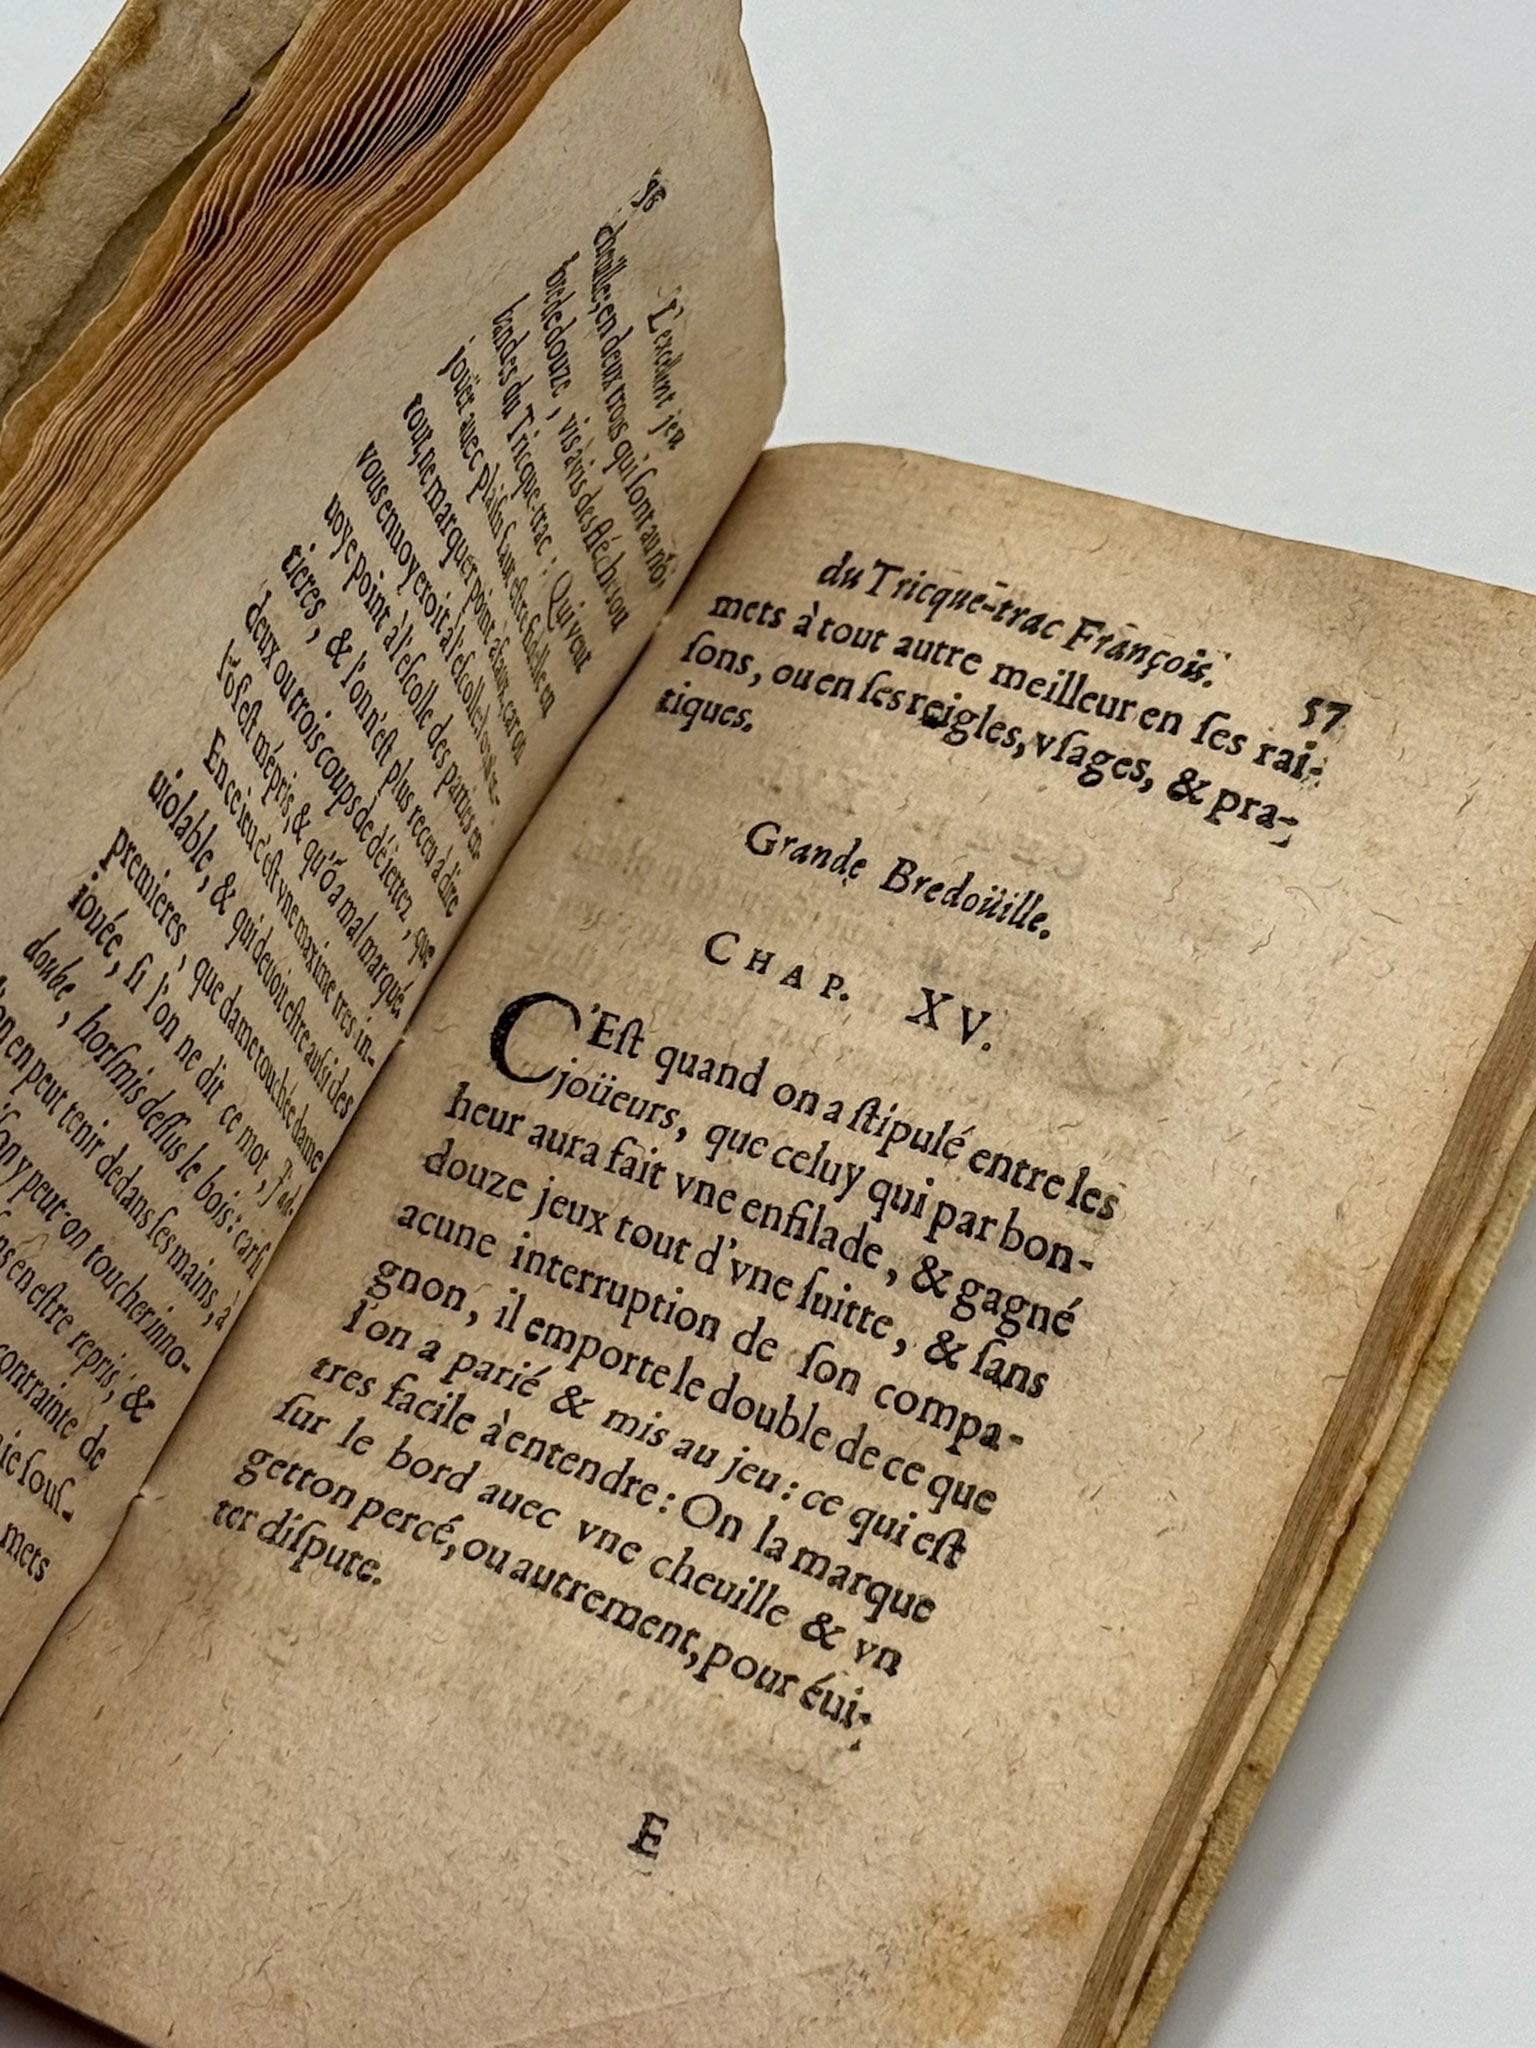 56
L'excelent jeu
cheuille; en deux trous qui sont au nō-
bre de douze, vis à vis des fléches ou
bandes du Tricque-trac: Qui veut
joüer auec plaisir faut estre fidelle en
tout, ne marquer point à faux, car on
vous enuoyeroit à l'escolle
uoye point à l'escolle des parties en-
tieres, & l'on n'est plus receu à dire
deux ou trois coups de dé jettez, que
l'ō s'est mépris, & qu'ō a mal marqué.
En ce jeu c'est vne maxime tres in-
uiolable, & qui deuoit estre aussi des
premieres, que dame touchée dame
joüée, si l'on ne dit ce mot, J'ad-
doube, horsmis dessus le bois: car si
l'on en peut tenir dedans ses mains, à
y peut-on toucher inno-
en estre repris, &
contrainte de
sous-
mets
du Tricque-trac François. 57
mets à tout autre meilleur en ses rai-
sons, ou en ses reigles, vsages, & pra-
tiques.
Grande Bredoüille.
CHAP. XV.
C'Est quand on a stipulé entre les
joüeurs, que celuy qui par bon-
heur aura fait vne enfilade, & gagné
douze jeux tout d'vne suitte, & sans
acune interruption de son compa-
gnon, il emporte le double de ce que
l'on a parié & mis au jeu: ce qui est
tres facile à entendre: On la marque
sur le bord auec vne cheuille & vn
getton percé, ou autrement, pour éui-
ter dispute.
E